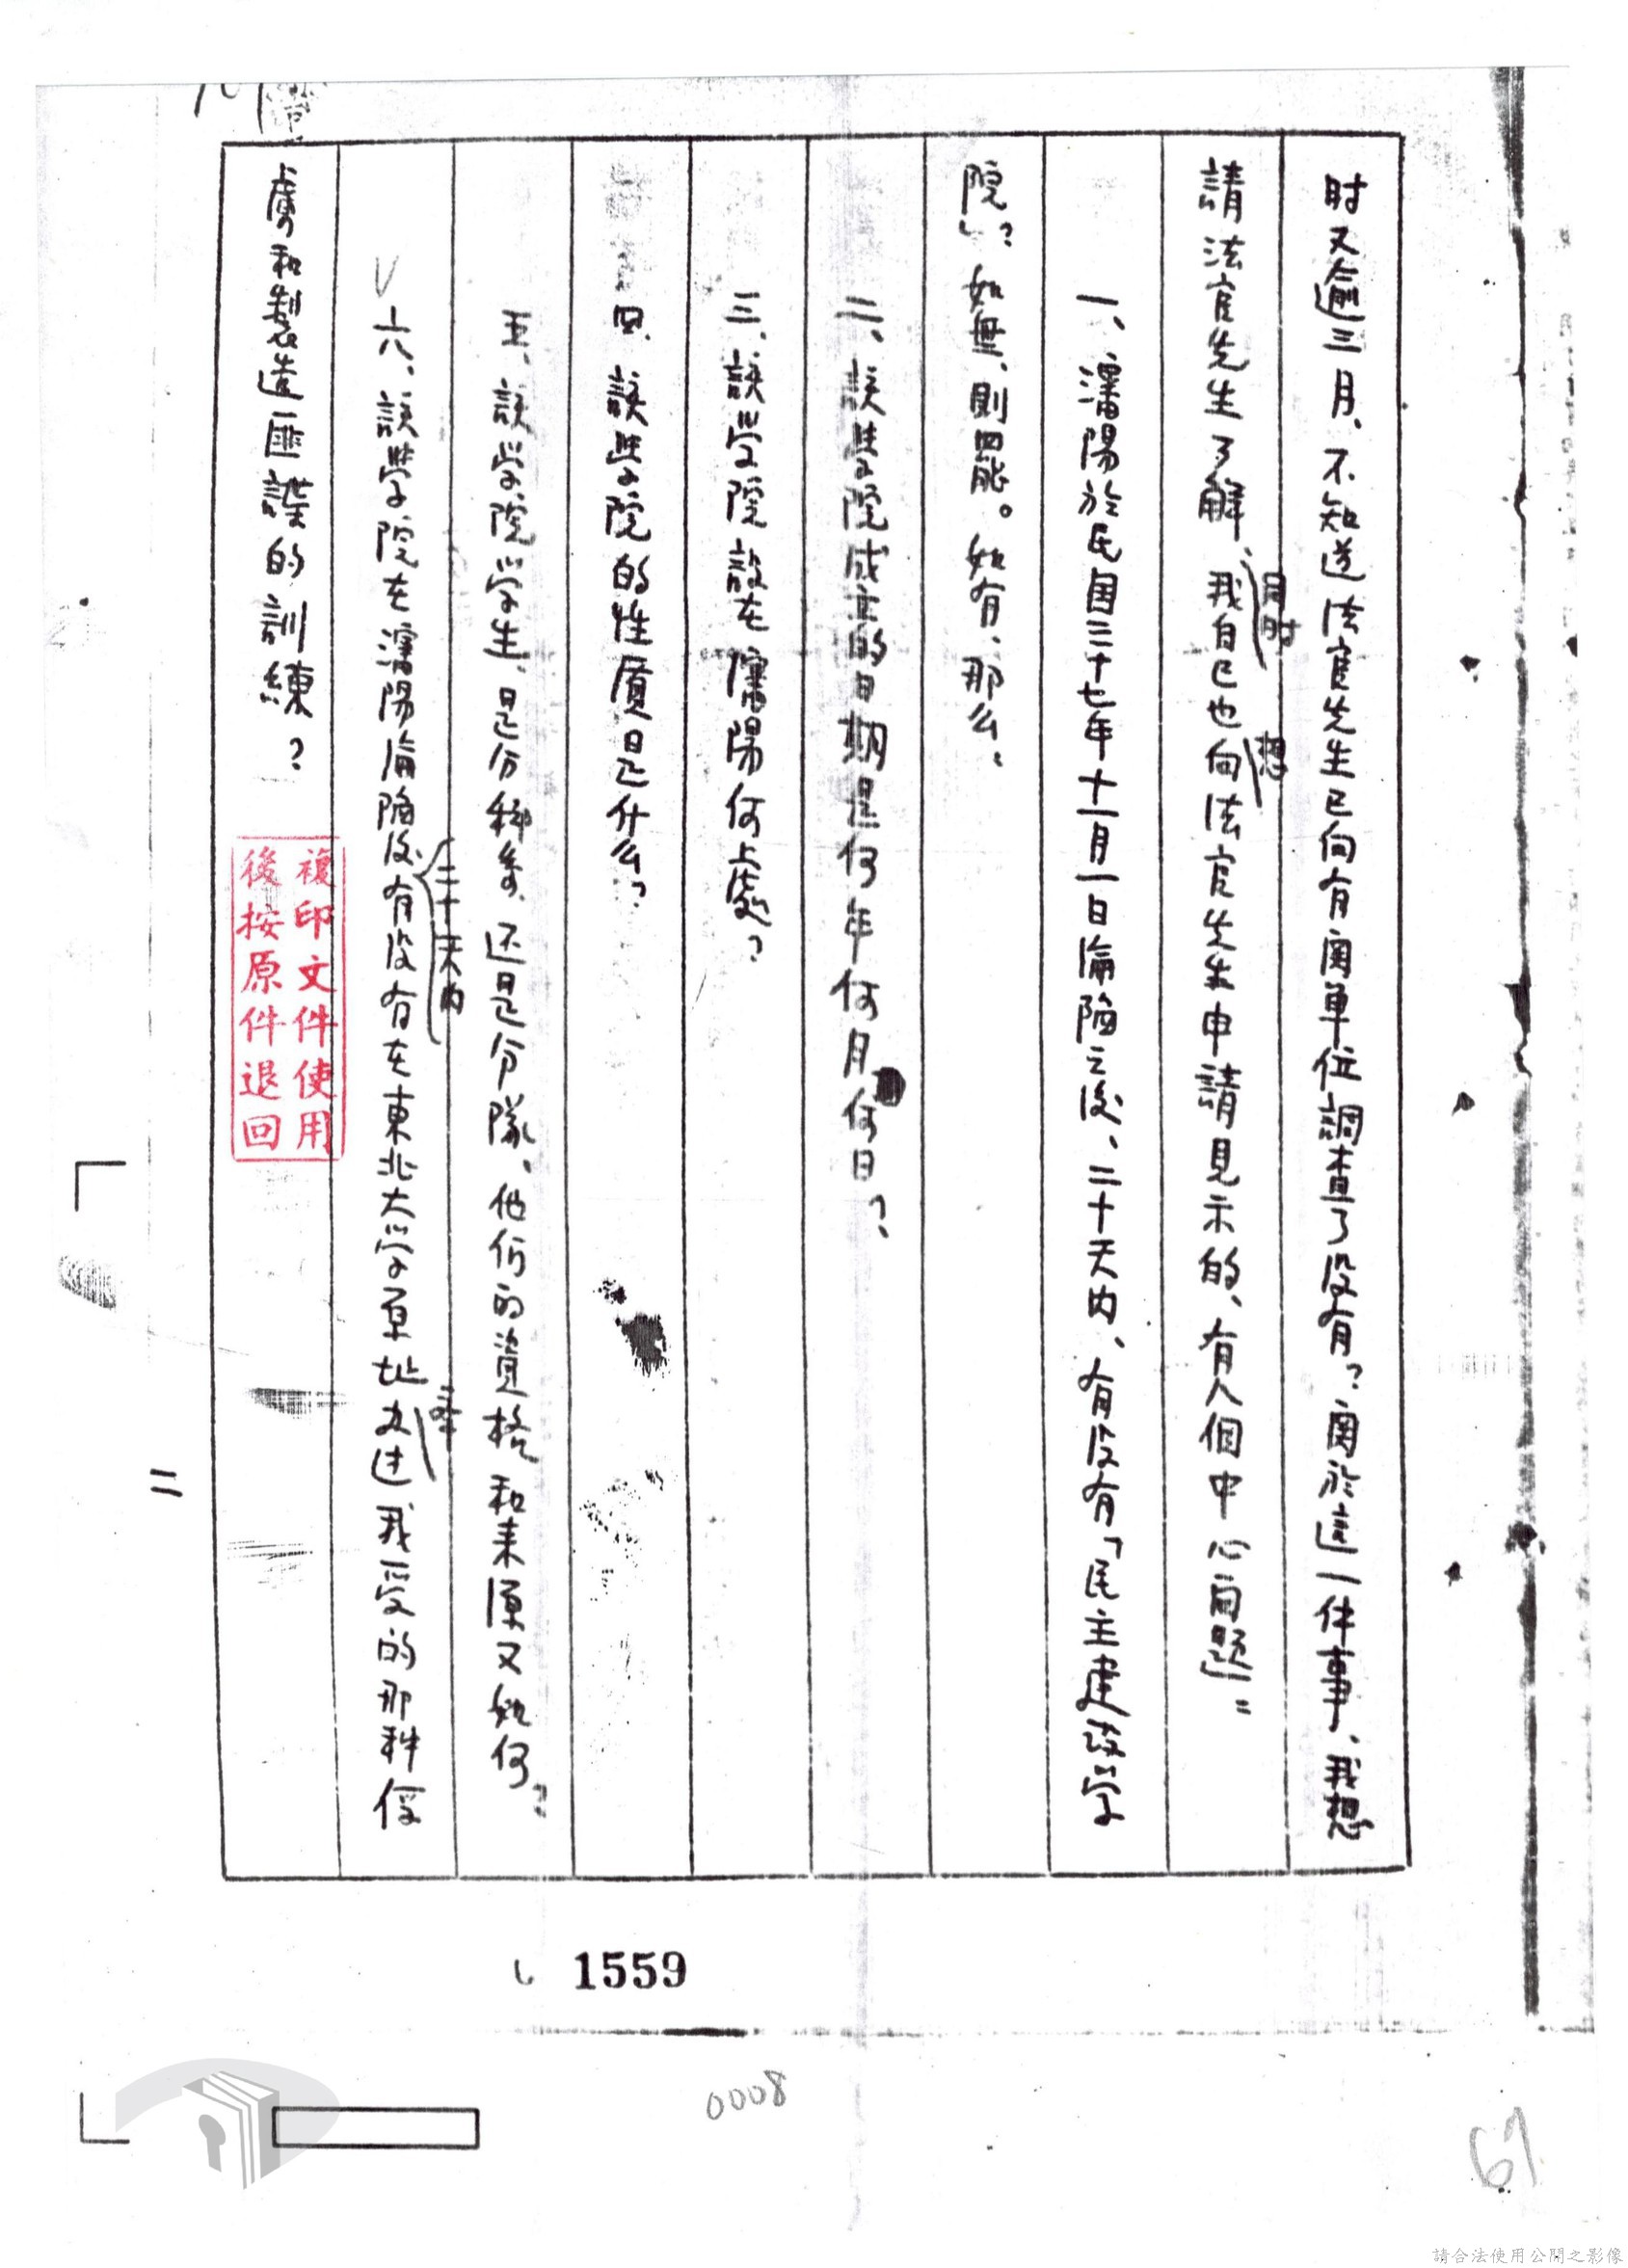 时又逾三月、不知道法官先生已向有関單位調查了没有？関於這一件事、我想
請法官先生了解、我自已也向法官先生申請見示的、有八個中心问题：
同时
想
一、瀋陽於民国三十七年十一月一日淪陷之後、二十天内、有没有「民主建政学
院」？如無、則罷。如有、那么：
二、該学院成立的日期是何年何月何日？
三、該学院設在瀋陽何処？
四、該学院的性质是什么？
五、該学院学生、是分科系、还是分隊、他们的資格和来源又如何？
六、該学院在瀋陽淪陷後有没有在東北大学原址办过我受的那种俘
二十天内
虜和製造匪諜的訓練？
複印文件使用
後按原件退回
二
1559
0008
67
請合法使用公開之影像